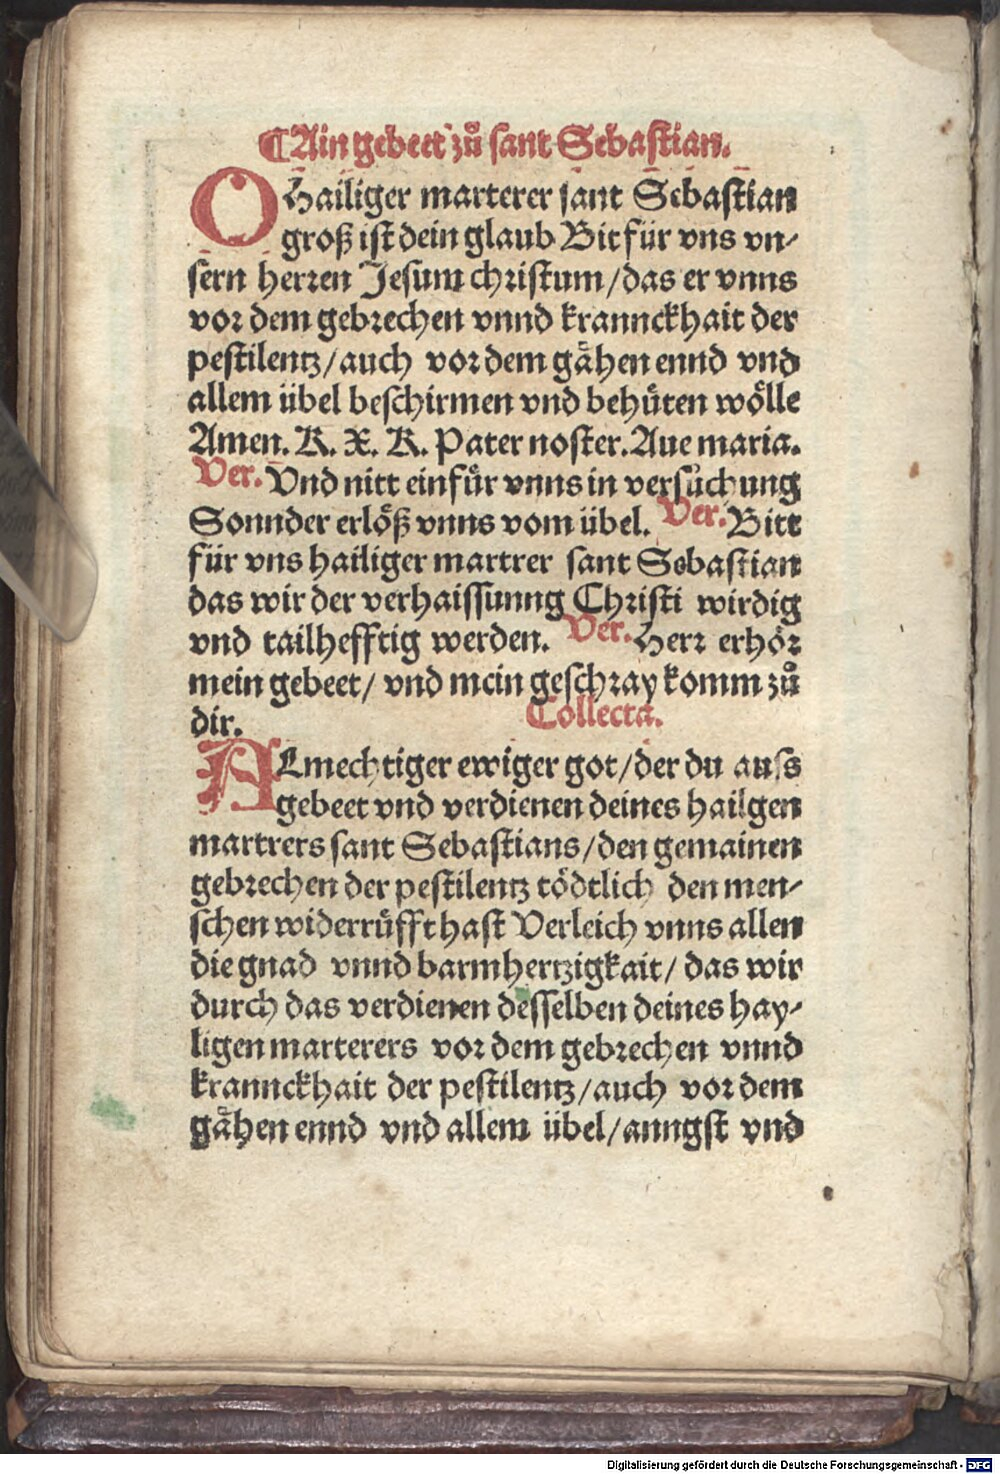 ¶Ain gebeet zů sant Sebastian.
O Hailiger marterer sant Sebastian
groß ist dein glaub Bit für vns vn⸗
sern herren Jesum christum/das er vnns
vor dem gebrechen vnnd kranckhait der
pestilentz/auch vor dem gähen ennd vnd
allem übel beschirmen vnd behüten wölle
Amen. K. X. K. Pater noster. Aue maria.
Ver. Vnd nitt einfür vnns in versuchung
Sonnder erlöß vnns vom übel. Ver. Bitt
für vns hailiger martrer sant Sebastian
das wir der verhaissunng Christi wirdig
vnd tailhefftig werden. Ver. Herr erhör
mein gebeet/ vnd mein geschray komm zů
dir. Collecta.
ALmechtiger ewiger got/der du auss
gebeet vnd verdienen deines hailgen
martrers sant Sebastians/den gemainen
gebrechen der pestilentz tödtlich den men⸗
schen widerrüfft hast Verleich vnns allen
die gnad vnnd barmhertzigkait/ das wir
durch das verdienen desselben deines hay⸗
ligen marterers vor dem gebrechen vnnd
krannckhait der pestilentz/auch vor dem
gähen ennd vnd allem übel/anngst vnd
Digitalisierung gefördert durch die Deutsche Forschungsgemeinschaft - DFG